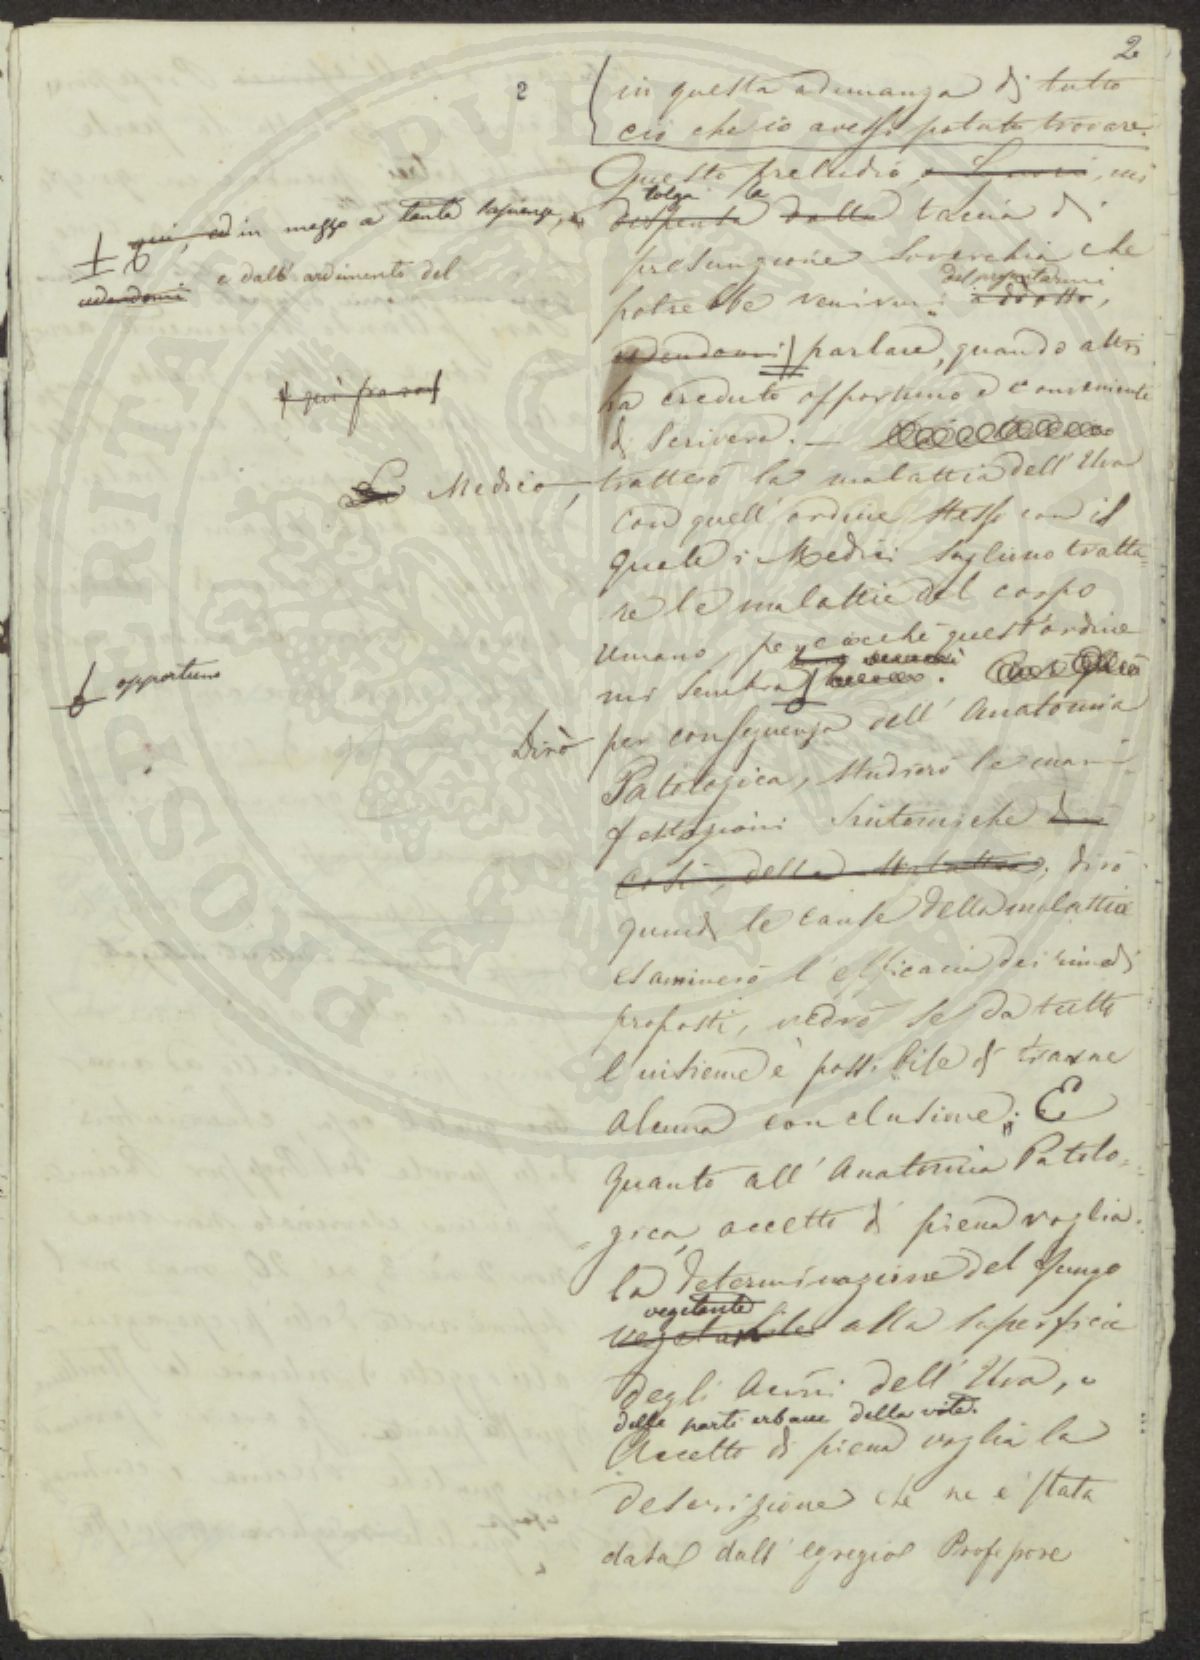 2
2
in questa adunanza di tutto
ciò che io avessi potuto trovare.
Questo preludio, mi
tolga la
dispensa dalla taccia di
presunzione soverchia che
potrebbe venirmi
adotto,
qui, ed in mezzo a tanta sapienza,
e dall'ardimento del
cedendomi
parlare, quando altri
ha creduto opportuno e conveniente
qui
di scrivere. —
Medico,
tratterò la malattia dell'Uva
con quell'ordine stesso con il
quale i Medici sogliono tratta-
re le malattie del corpo
umano, perciocché quest'ordine
mi sembra
opportuno
Dirò
per conseguenza dell'Anatomia
Patologica, studierò le mani-
festazioni sintomiche
così, della malattia, dirò
quindi le cause della malattia
esaminerò l'efficacia dei rimedi
proposti, vedrò se da tutto
l'insieme è possibile di trarne
alcuna conclusione; E
quanto all'Anatomia Patolo-
gica, accetto di piena voglia
la determinazione del fungo
vegetante
vegetabile alla superficie
degli acini dell'Uva, e
delle parti erbacee della vite.
Accetto di piena voglia la
descrizione che ne è stata
data dall'egregio Professore
PROSPERITA PVB